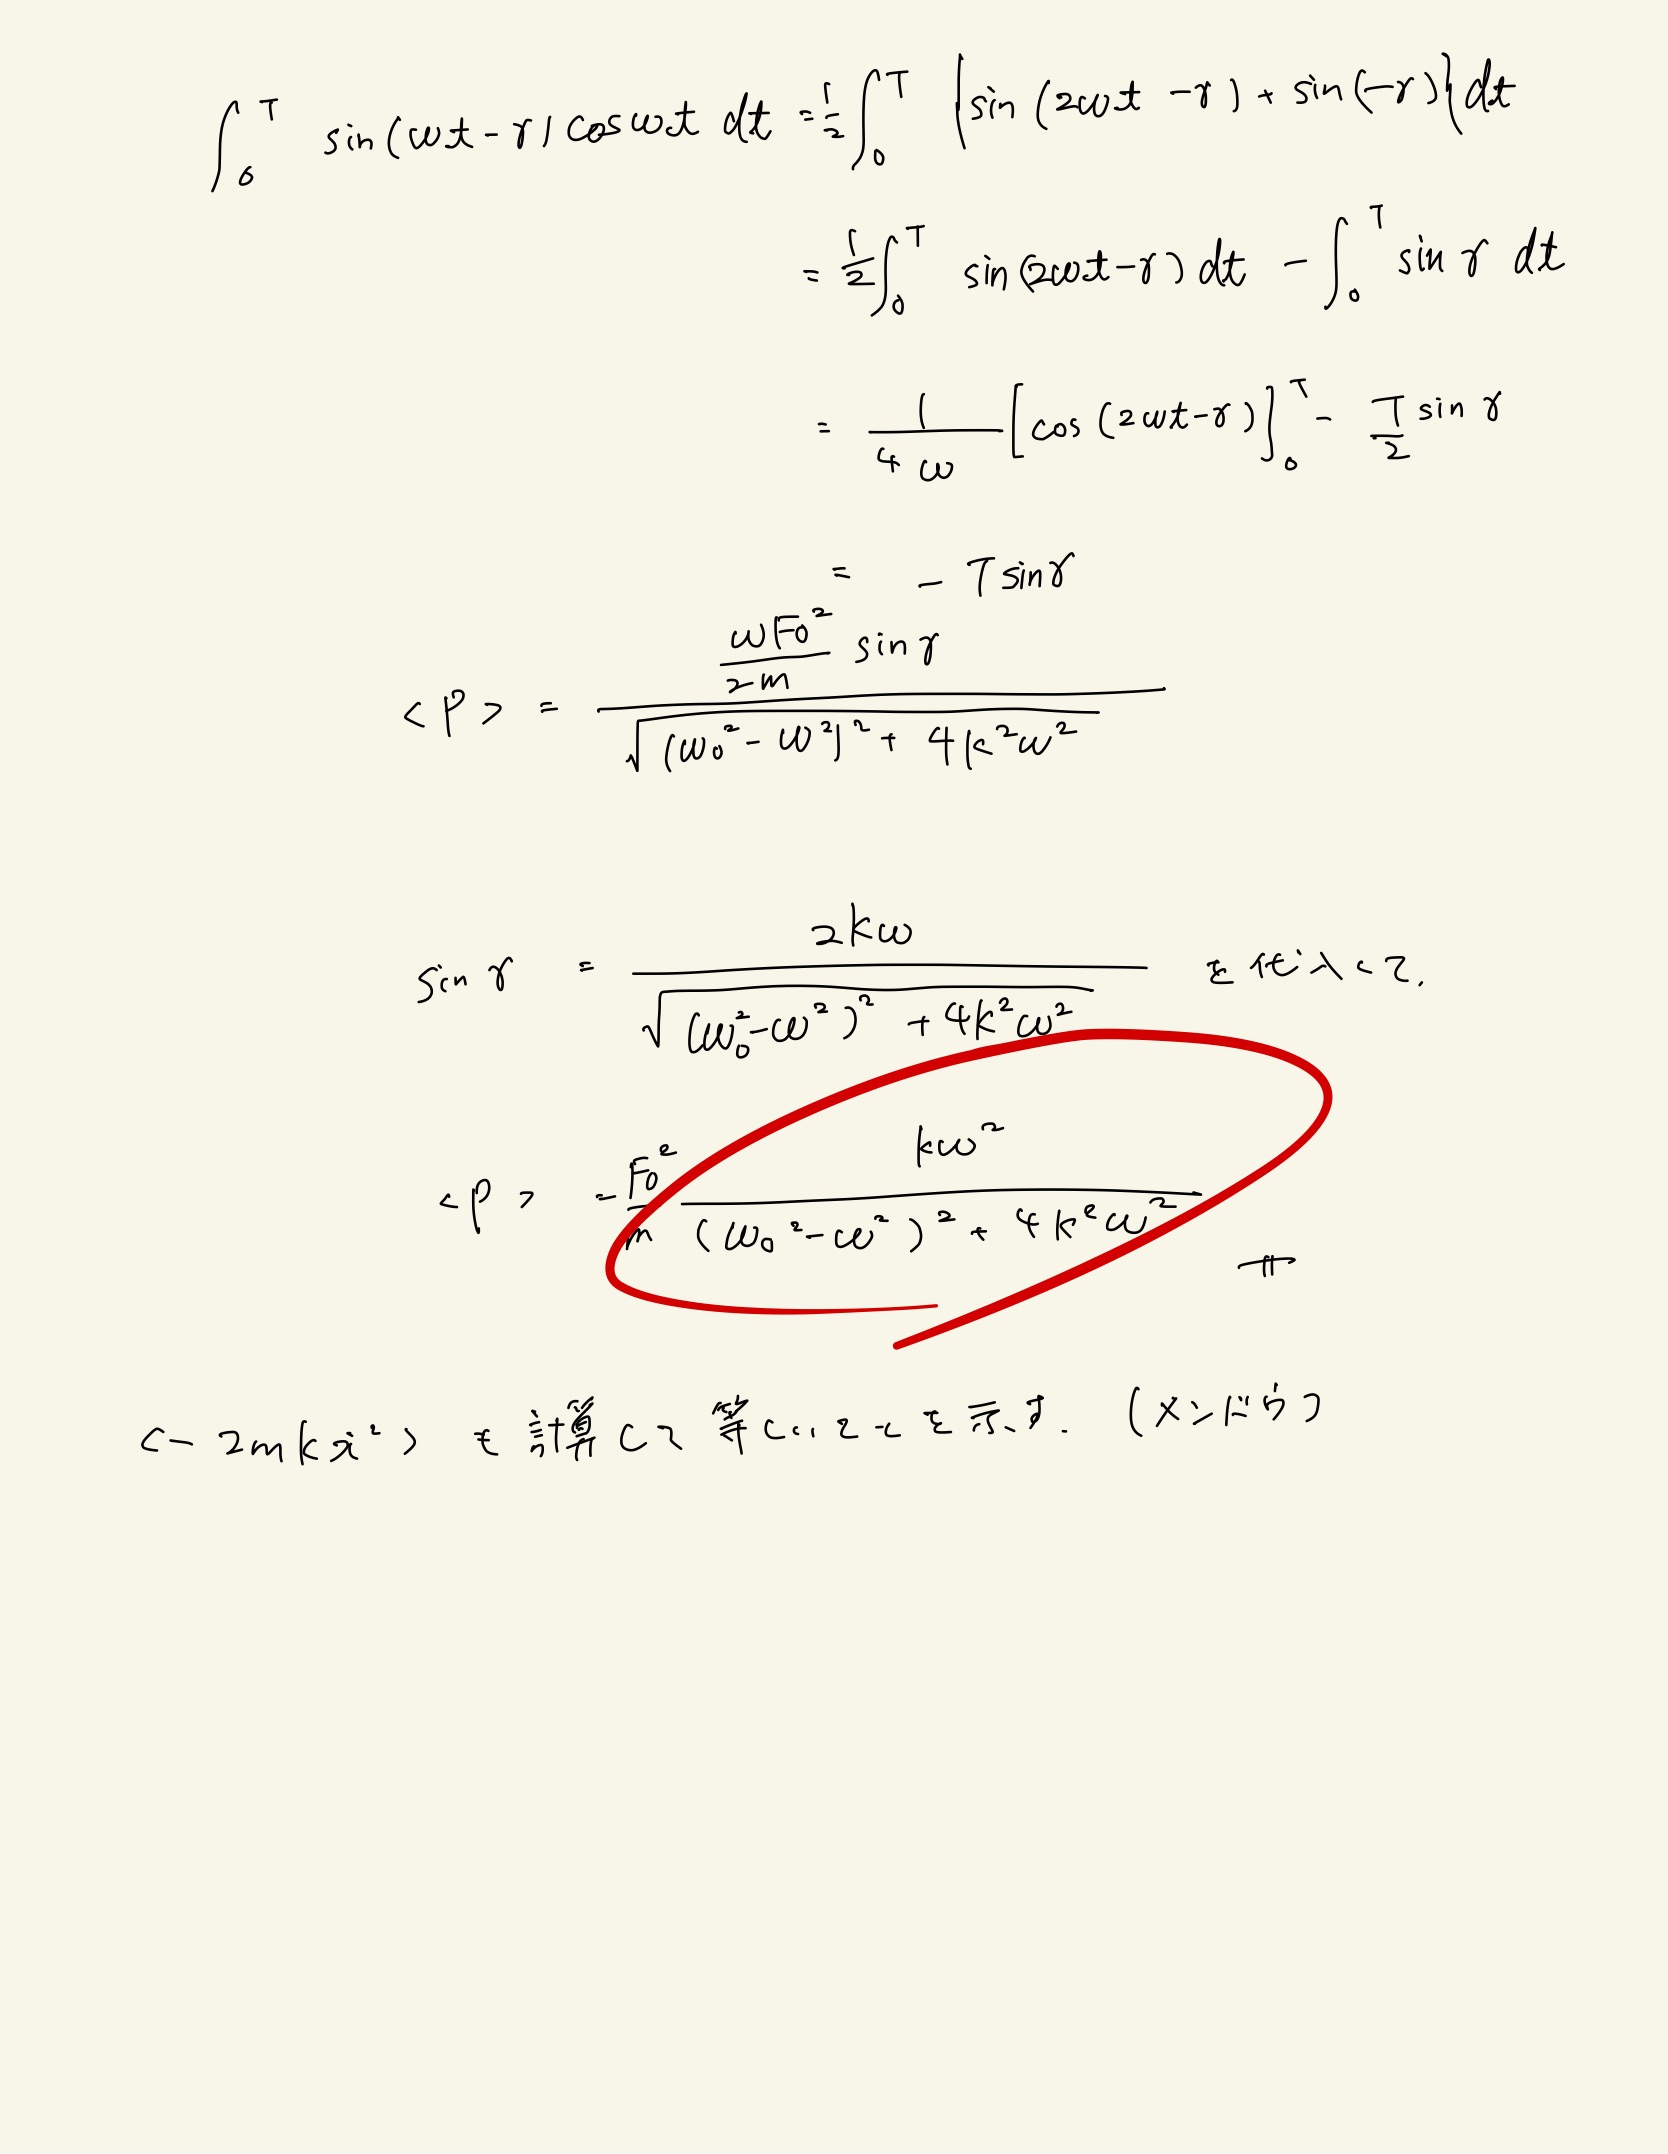 ∫₀ᵀ sin(ωt-γ) cosωt dt = 1/2 ∫₀ᵀ {sin(2ωt-γ) + sin(-γ)} dt
= 1/2 ∫₀ᵀ sin(2ωt-γ) dt - ∫₀ᵀ sin γ dt
= 1/(4ω) [cos(2ωt-γ)]₀ᵀ - T/2 sin γ
= - T sinγ
<P> = (ωF₀²/2m sin γ) / √((ω₀²-ω²)² + 4k²ω²)
sin γ = 2kω / √((ω₀²-ω²)² + 4k²ω²) を代入して.
<P> = F₀²/m kω² / ((ω₀²-ω²)² + 4k²ω²)
<-2mkẋ²> も計算して等しいことを示す. (メンドウ)